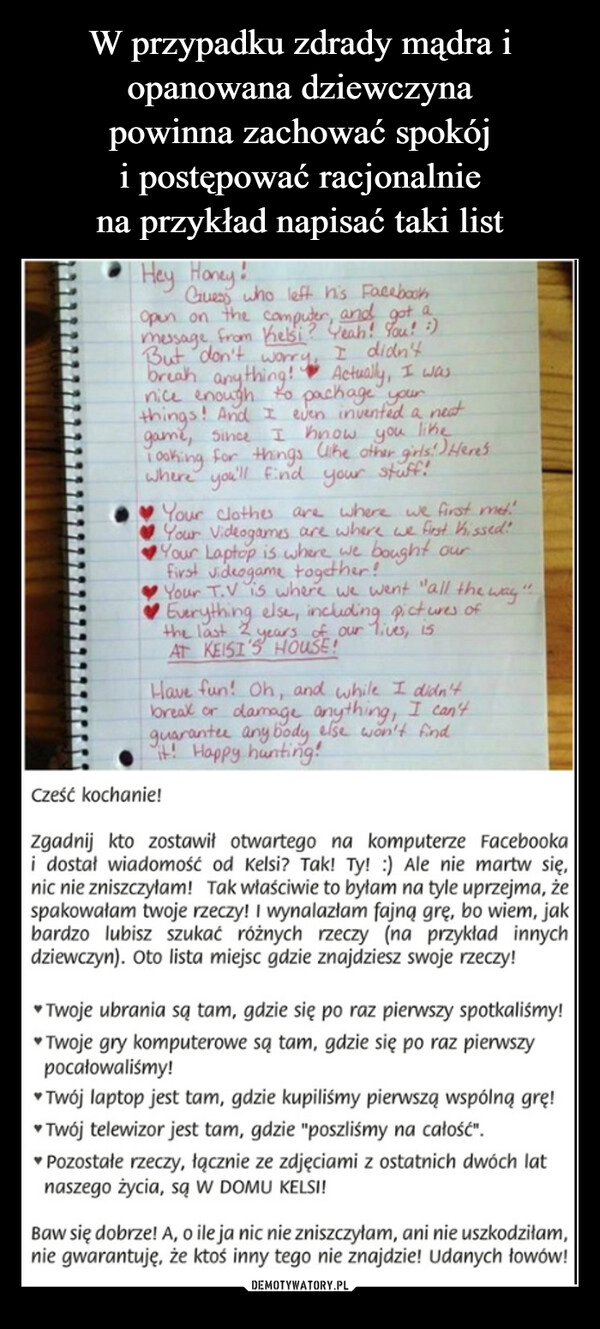 W przypadku zdrady mądra i
opanowana dziewczyna
powinna zachować spokój
i postępować racjonalnie
na przykład napisać taki list
Hey Honey!
Guess who left his Facebook
open on the computer, and got a
message from Kelsi? Yeah! You! :)
But don't worry, I didn't
break anything! ♥ Actually, I was
nice enough to package your
things! And I even invented a neat
game, since I know you like
looking for things (like other girls!) Here's
where you'll find your stuff!
♥ Your clothes are where we first met!
♥ Your Videogames are where we first kissed!
♥ Your Laptop is where we bought our
first videogame together!
♥ Your T.V is where we went "all the way"!
♥ Everything else, including pictures of
the last 2 years of our lives, is
AT KElSI'S HOUSE!
Have fun! Oh, and while I didn't
break or damage anything, I can't
guarantee anybody else won't find
it! Happy hunting!
Cześć kochanie!
Zgadnij kto zostawił otwartego na komputerze Facebooka
i dostał wiadomość od Kelsi? Tak! Ty! :) Ale nie martw się,
nic nie zniszczyłam! Tak właściwie to byłam na tyle uprzejma, że
spakowałam twoje rzeczy! I wynalazłam fajną grę, bo wiem, jak
bardzo lubisz szukać różnych rzeczy (na przykład innych
dziewczyn). Oto lista miejsc gdzie znajdziesz swoje rzeczy!
♥ Twoje ubrania są tam, gdzie się po raz pierwszy spotkaliśmy!
♥ Twoje gry komputerowe są tam, gdzie się po raz pierwszy
pocałowaliśmy!
♥ Twój laptop jest tam, gdzie kupiliśmy pierwszą wspólną grę!
♥ Twój telewizor jest tam, gdzie "poszliśmy na całość".
♥ Pozostałe rzeczy, łącznie ze zdjęciami z ostatnich dwóch lat
naszego życia, są W DOMU KELSI!
Baw się dobrze! A, o ile ja nic nie zniszczyłam, ani nie uszkodziłam,
nie gwarantuję, że ktoś inny tego nie znajdzie! Udanych łowów!
DEMOTYWATORY.PL